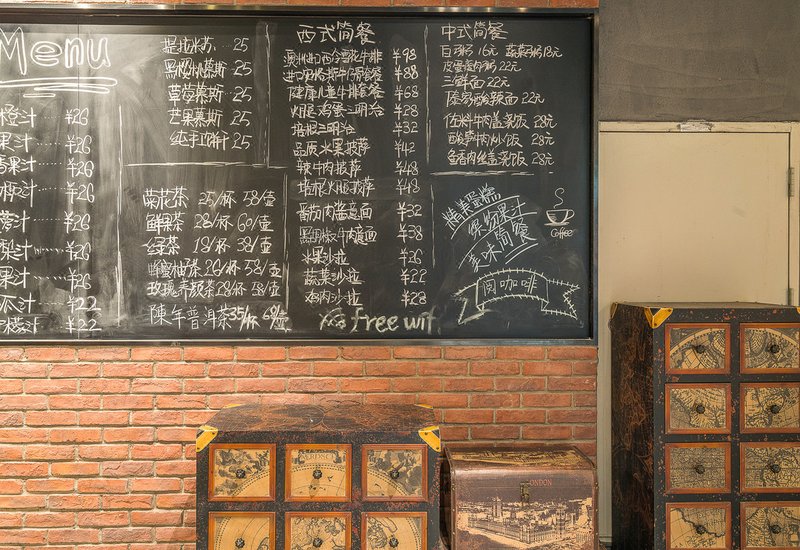 Menu
橙汁 ¥26
果汁 ¥26
果汁 ¥26
汁 ¥26
汁 ¥26
梨汁 ¥26
果汁 ¥26
瓜汁 ¥22
汁 ¥22
提拉米苏 25
黑樱桃慕斯 25
草莓慕斯 25
芒果慕斯 25
纯手工饼干 25
菊花茶 25/杯 58/壶
鲜果茶 28/杯 60/壶
绿茶 18/杯 38/壶
蜂蜜柚子茶 26/杯 58/壶
玫瑰养颜茶 28/杯 58/壶
陈年普洱茶 35/杯 68/壶
西式简餐
澳洲进口西冷雪花牛排 ¥98
牛仔骨套餐 ¥88
儿童牛排套餐 ¥68
火腿鸡蛋三明治 ¥28
培根三明治 ¥32
品质水果披萨 ¥42
辣牛肉披萨 ¥48
培根火腿披萨 ¥48
番茄肉酱意面 ¥32
黑胡椒牛肉意面 ¥38
水果沙拉 ¥26
蔬菜沙拉 ¥22
鸡肉沙拉 ¥28
free wifi
中式简餐
白粥 16元 蔬菜粥 18元
皮蛋瘦肉粥 22元
三鲜面 22元
酸辣面 22元
牛肉盖浇饭 28元
酸萝卜肉炒饭 28元
鱼香肉丝盖浇饭 28元
精美蛋糕
缤纷果汁
美味简餐
Coffee
阅咖啡
LONDON